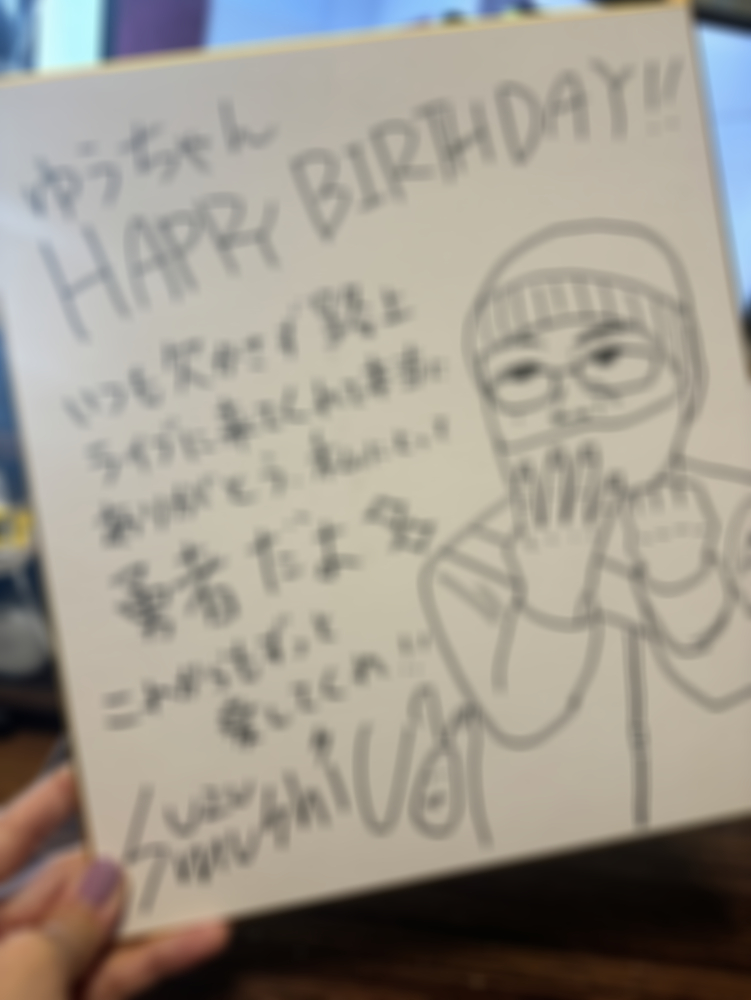 ゆうちゃん
HAPPY BIRTHDAY!!
いつも欠かさず路上
ライブに来てくれて
ありがとう、
勇者だよ
これからもずっと
愛してくれ!!